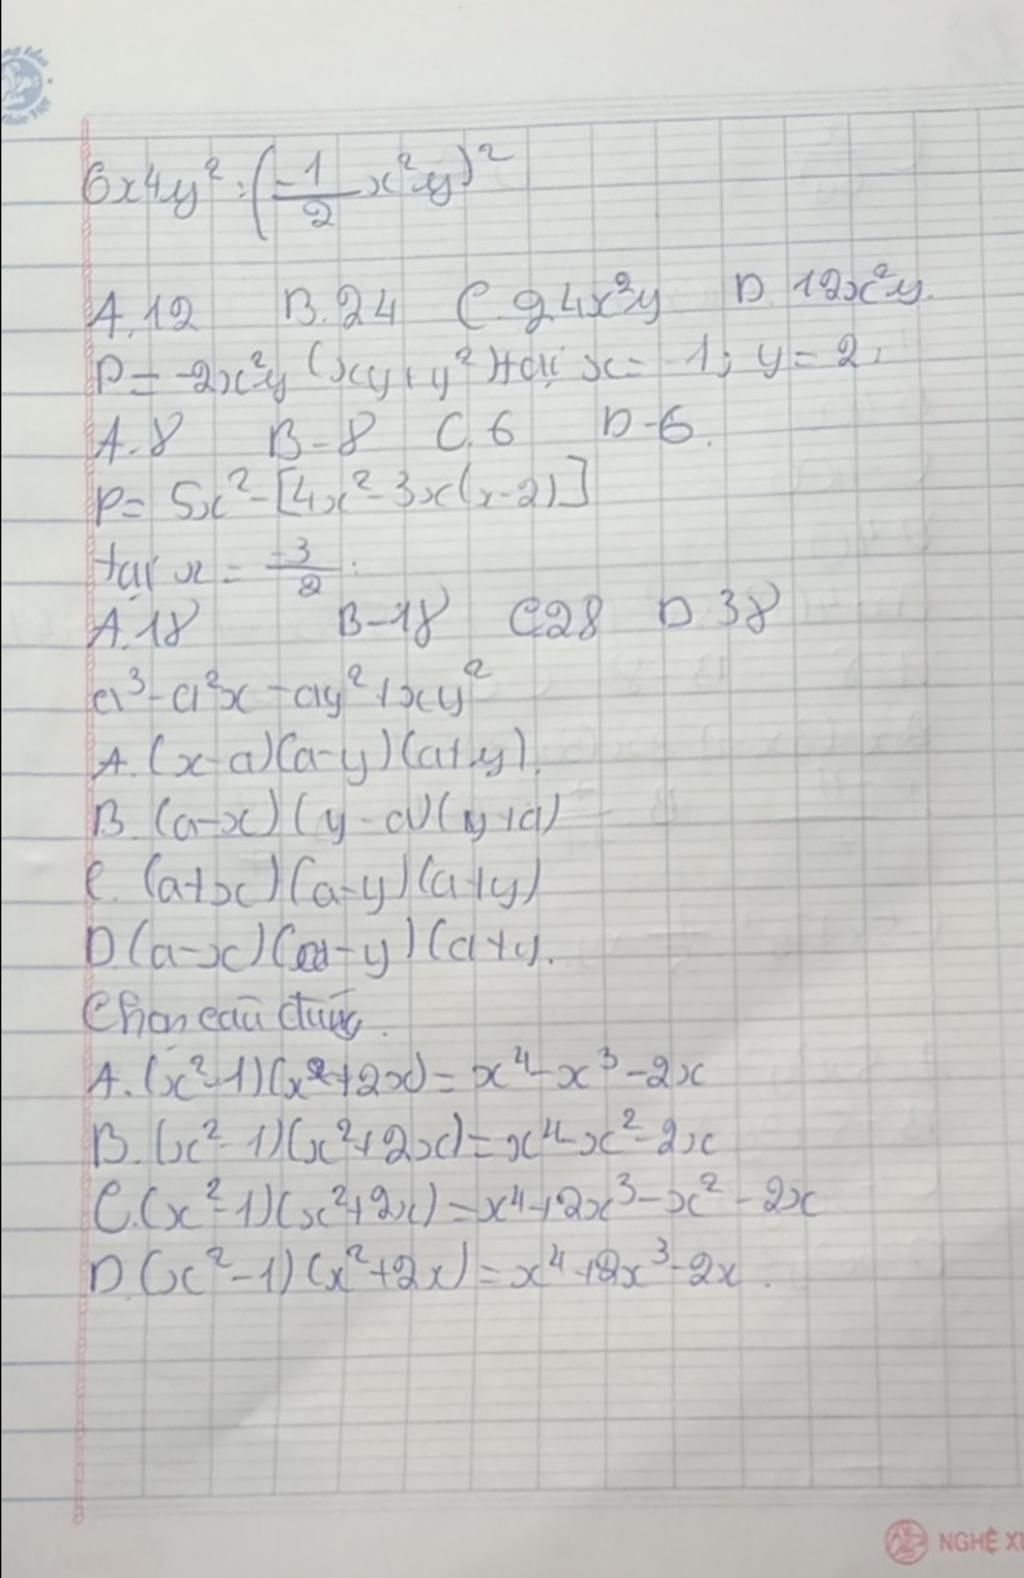 6x4y² : (-1/2 x²y)²
A. 12 B. 24 C. 24x²y D. 12x²y.
P = -2x²y (xy + y²) tại x = -1; y = 2.
A. 8 B -8 C. 6 D -6.
P = 5x² - [4x² - 3x(x-2)]
tại x = -3/2.
A. 18 B -18 C 28 D. 38
a³ - a²x - ay² + xy²
A. (x-a)(a-y)(a+y).
B. (a-x)(y-a)(y+a)
C. (a+x)(a-y)(a+y)
D. (a-x)(a-y)(a+y).
Chọn câu đúng.
A. (x²-1)(x²+2x) = x⁴ - x³ - 2x
B. (x²-1)(x²+2x) = x⁴ - x² - 2x
C. (x²-1)(x²+2x) = x⁴ + 2x³ - x² - 2x
D (x²-1)(x²+2x) = x⁴ + 2x³ - 2x.
NGHỆ